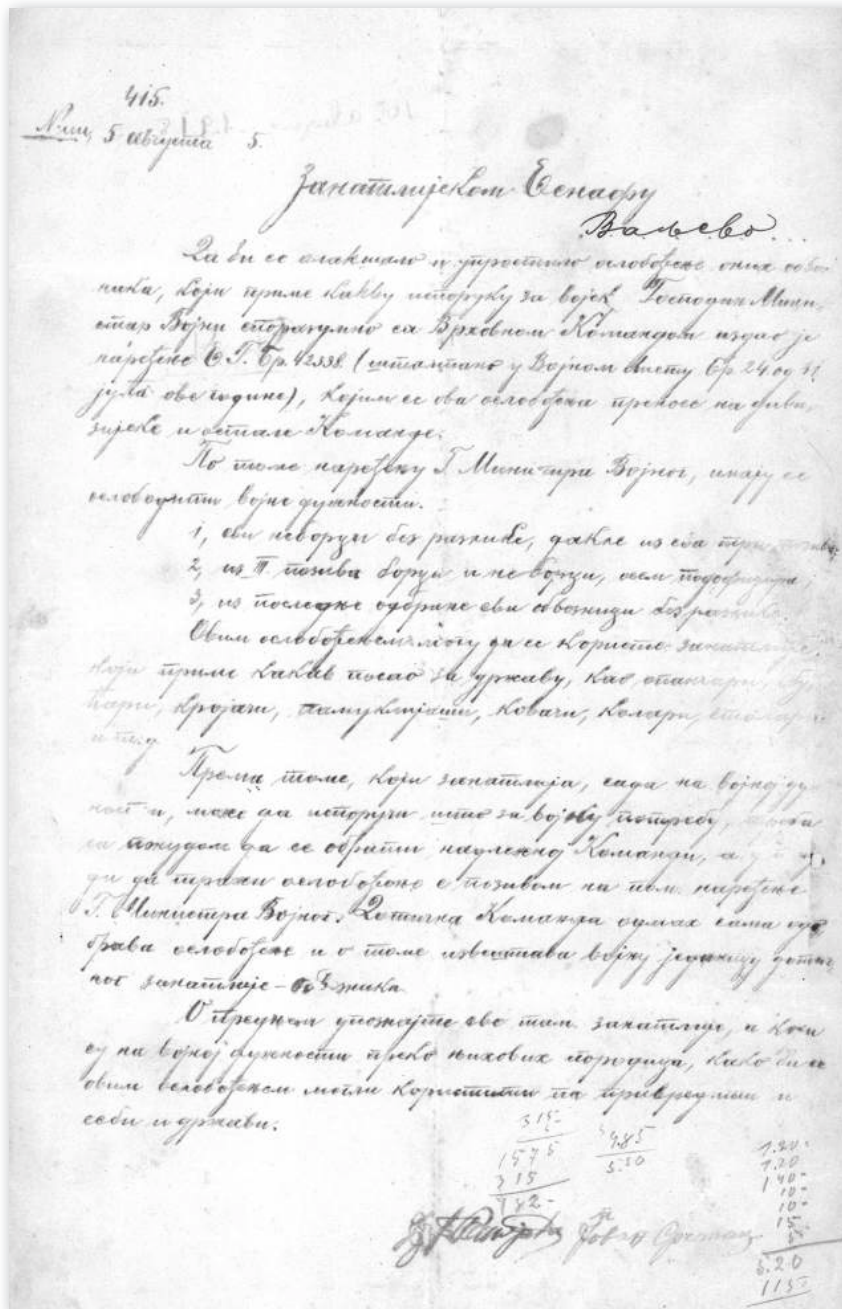 415.
5 августа 5.
Занатлијском Еснафу
Ваљево...
Да би се олакшало и упростило ослобођење оних обвез
ника, који приме какву испоруку за војску Господин Мини-
стар Војни споразумно са Врховном Командом издао је
наређење Е.Г. Бр. 42338. (штампано у Војном Листу бр. 24 од
јула ове године), којим се ова ослобођења преносе на диви-
зијске и остале Команде.
По томе наређењу Г. Министра Војног, имају се
ослободити војне дужности.
1, сви неборци без разлике, дакле из сва три позива;
2, из III. позива борци и не борци, осем подофицира,
3, из последње одбране сви обвезници без разлике.
Овим ослобођењем могу да се користе занатлије
који приме какав посао за државу, као опанчари,
кројачи, памуклијаши, ковачи, колари, столари
и т.д
Према томе, који занатлија, сада на војној ду
ности, може да испоручи што за војну потребу,
са понудом да се обрати надлежној Команди, а
да тражи ослобођење с позивом на пом. наређење
Г. Министра Војног. Дотична Команда одмах сама одо
брава ослобођење и о томе извештава војну јединицу дотич
ног занатлије-обвезника
О предњем упознајте све там. занатлије, а који
су на војној дужности преко њихових породица, како би се
овим ослобођењем могли користити па привредили и
себи и држави.
315-
1575
315
4.85
5.50
1.20-
1.20
140-
10-
10-
15
5
5.20
Јован